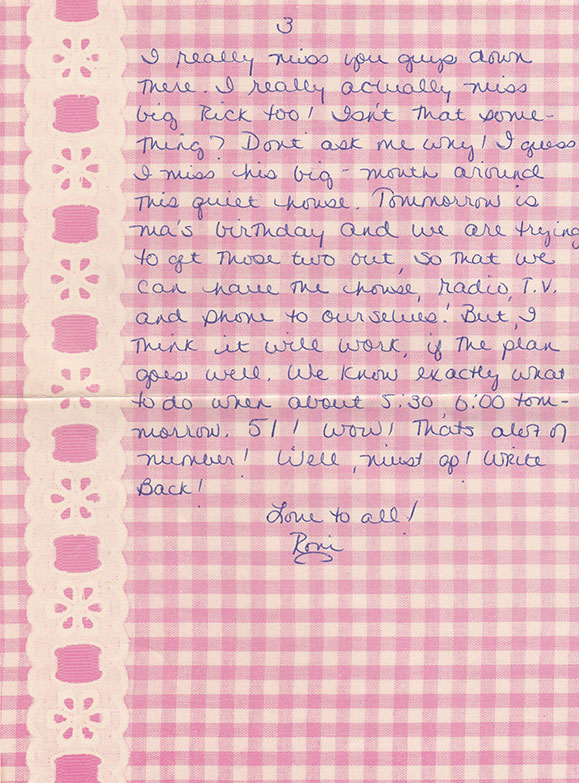 3
I really miss you guys down
there. I really actually miss
big Rick too! Isn't that some-
thing? Dont ask me why! I guess
I miss his big-mouth around
this quiet house. Tommorrow is
ma's birthday and we are trying
to get those two out, so that we
can have the house, radio, T.V.
and phone to ourselves! But, I
think it will work, if the plan
goes well. We know exactly what
to do when about 5:30, 6:00 tom-
morrow. 51! Wow! Thats alot of
number! Well, must go! Write
Back!
Love to all!
Roni